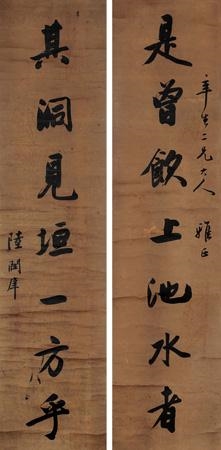 是曾飲上池水者
辛生二兄大人 雅正
其洞見垣一方乎
陸潤庠